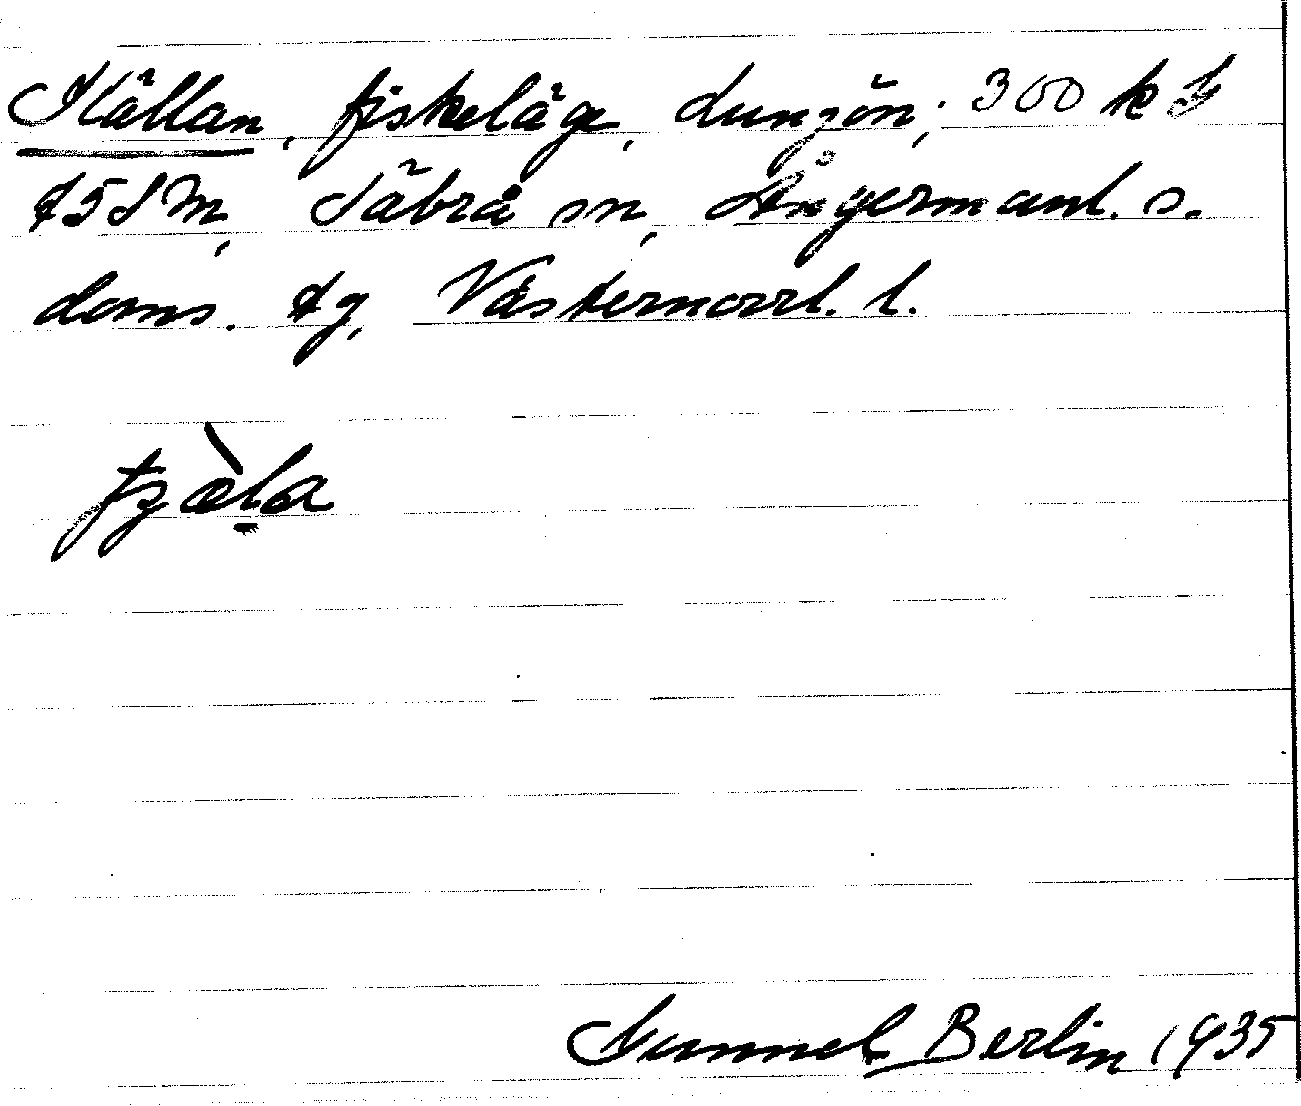 Källan, fiskeläge, Lungön; 300 k
t5SM, Säbrå sn, Ångermanl. s.
doms. tg, Västernorrl. l.
Gunnel Berlin 1935